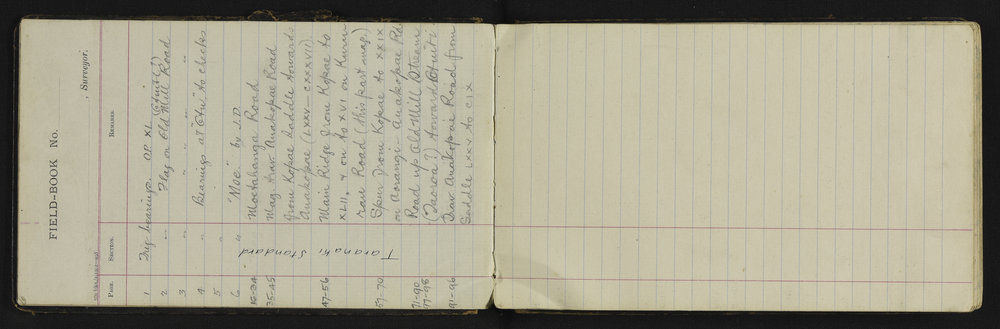 FIELD-BOOK No.
, Surveyor.
PAGE. SECTION. REMARKS.
1 Trig bearings. OP. XL
2 " Flag on Old Mill Road
3 " " " "
4 " Bearings at "Otu" to checks
5 "
6 " "Moe" by J.D.
15-34 Moetahanga Road
35-45 Mag. trav. Anakopae Road
from Kopae Saddle towards
Anakopae (LXXV - CXXXVII)
47-56 Main Ridge from Kopae to
XLII, & on to XVI on
Road (this part mag.)
59-70 Spur from Kopae to XXIX
on Aorangi - Anakopae Rd
71-90 Road up Old Mill Stream
77-98 towards
91-96 Trav. Anakopai Road from
Saddle LXXV to CIX
Taranaki Standard